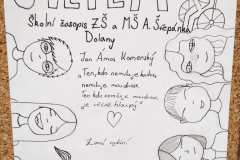 Školní časopis ZŠ a MŠ A. Štěpánka
Dolany
Jan Amos Komenský
"Ten, kdo nemiluje knihu,
nemiluje moudrost.
Ten kdo nemiluje moudrost,
je věčně hloupý"
Zimní vydání